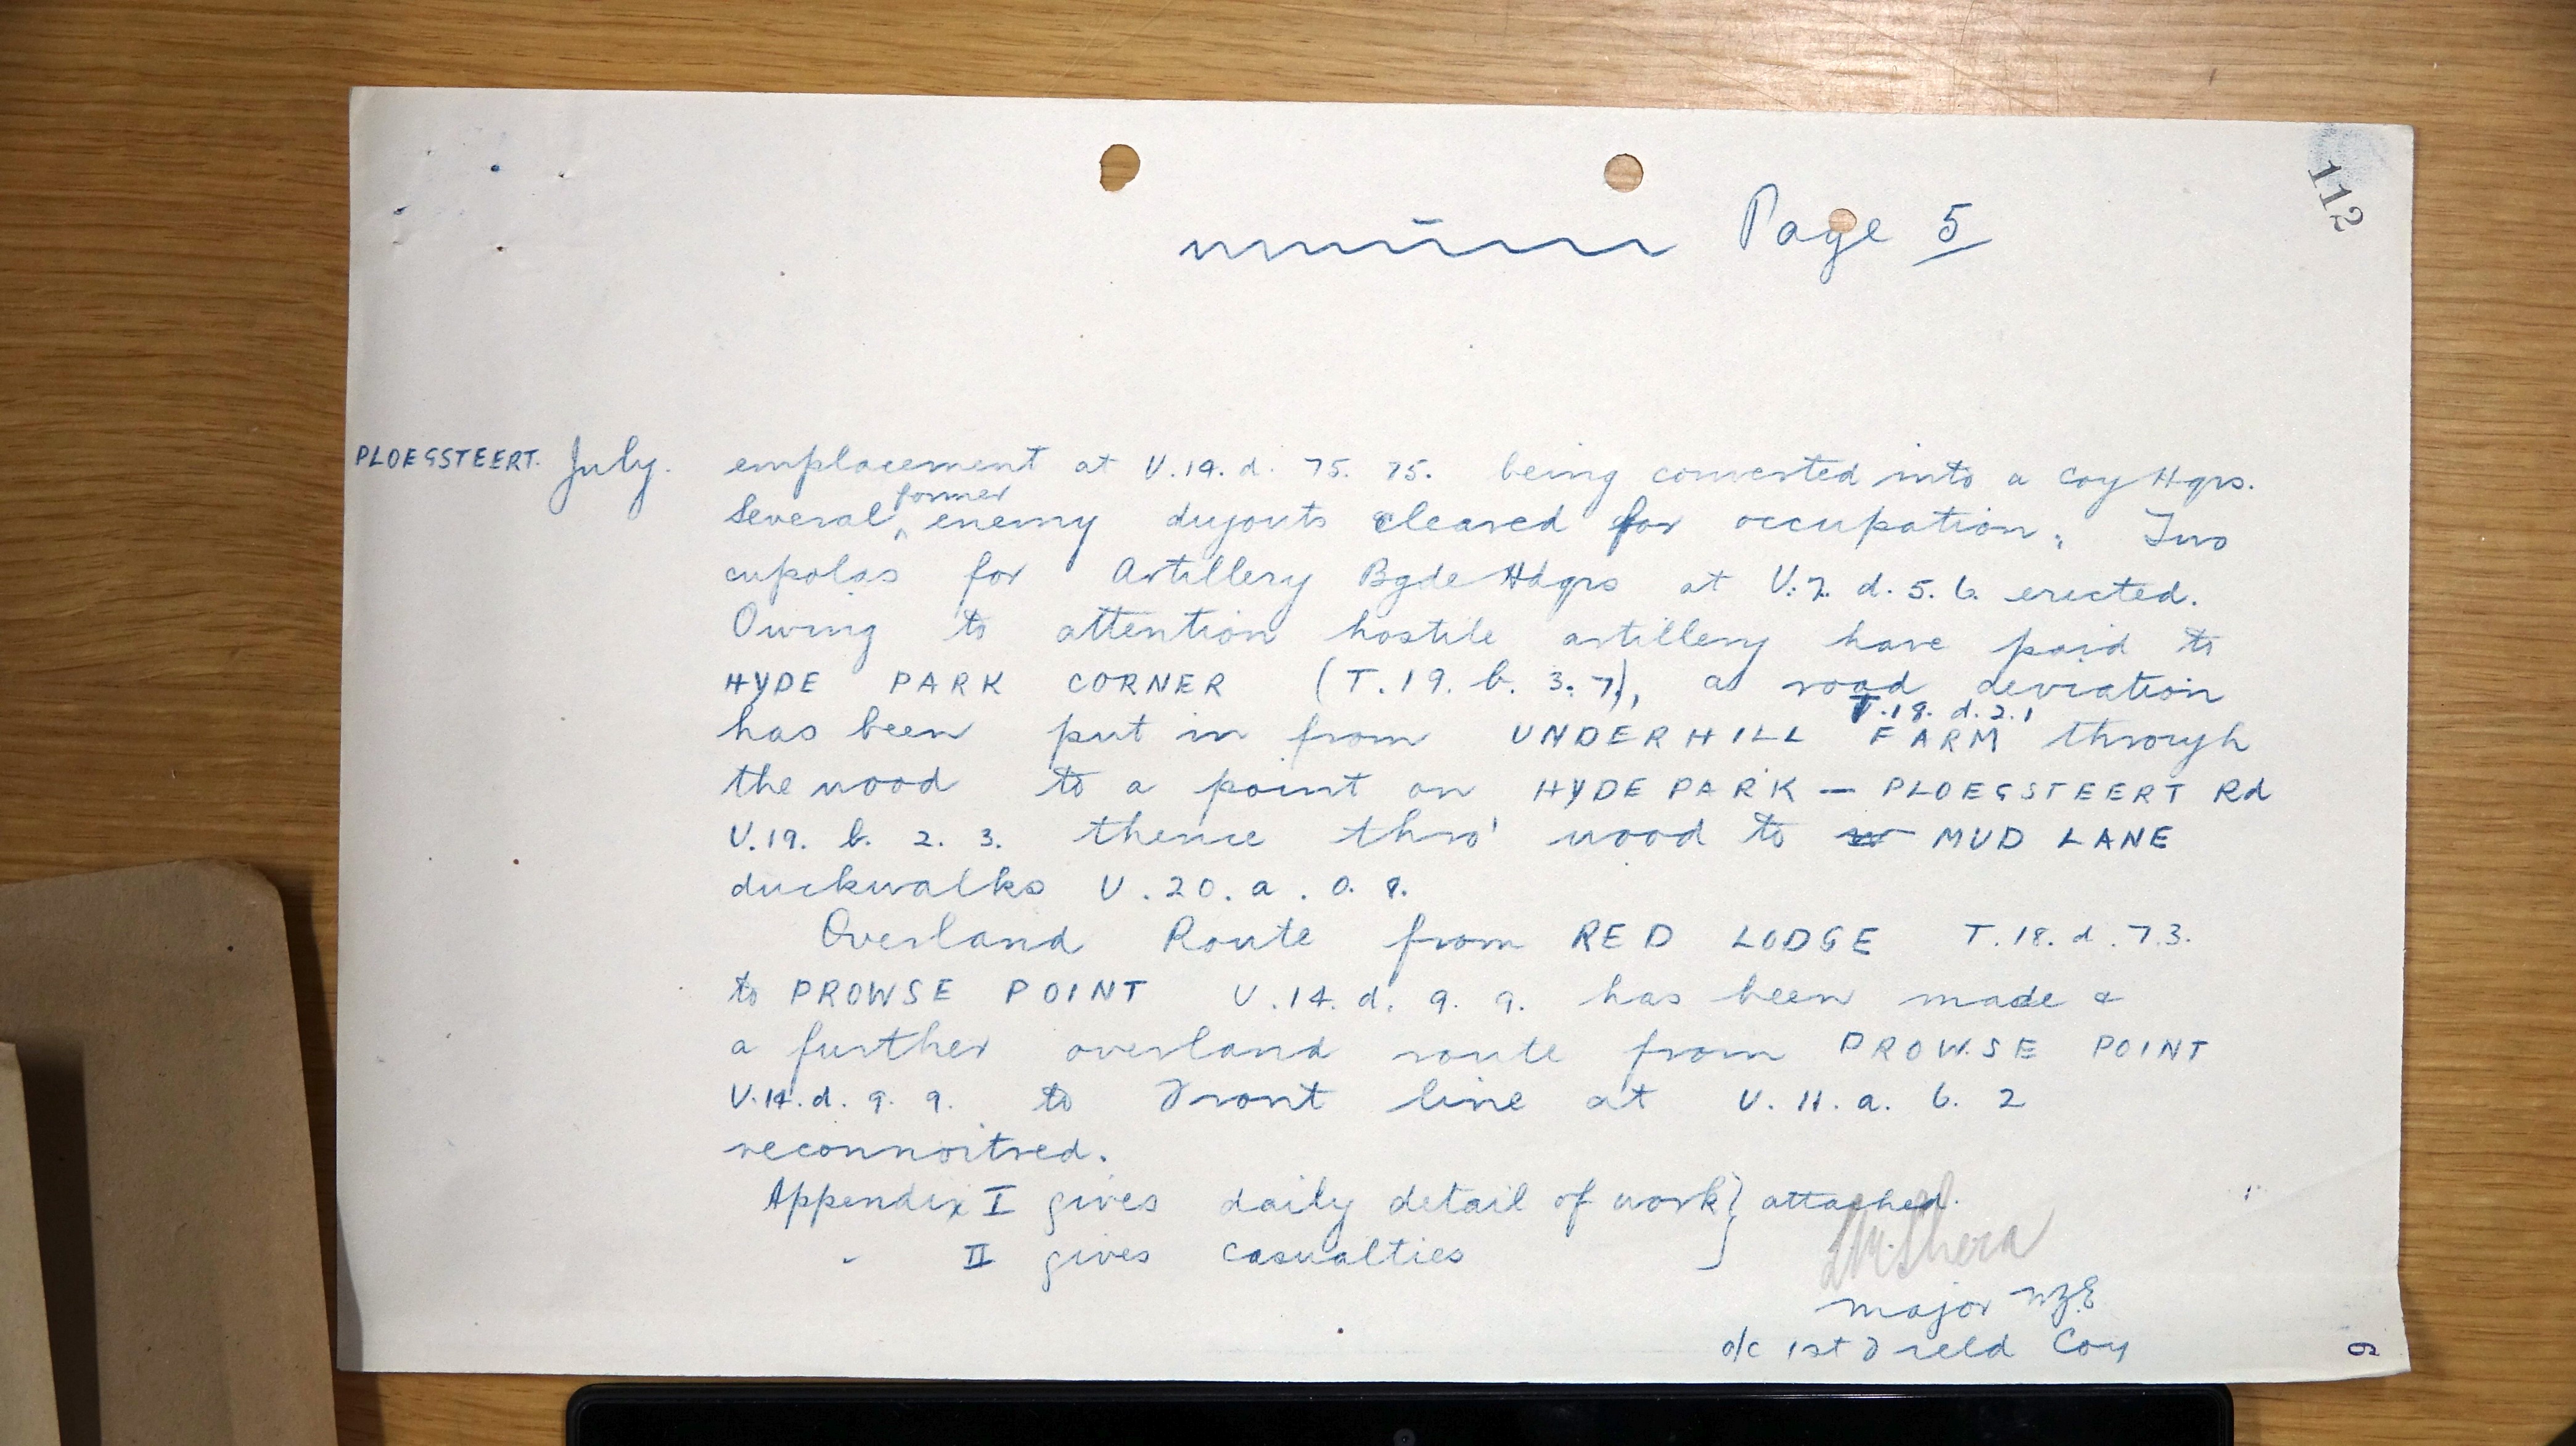 112
Page 5
PLOEGSTEERT. July. emplacement at U.14.d. 75. 75. being converted into a Coy Hqrs.
Several former enemy dugouts cleared for occupation. Two
cupolas for Artillery Bgde Hdqrs at U.7. d. 5. 6. erected.
Owing to attention hostile artillery have paid to
HYDE PARK CORNER (T.19. b. 3. 7), a road deviation
has been put in from UNDERHILL FARM T.18. d. 2.1 through
the wood to a point on HYDE PARK — PLOEGSTEERT Rd
U.19. b. 2. 3. thence thro' wood to MUD LANE
duckwalks U.20.a.0.8.
Overland Route from RED LODGE T.18.d.7.3.
to PROWSE POINT U.14.d. 9. 9. has been made &
a further overland route from PROWSE POINT
U.14.d. 9. 9. to Front line at U.11.a. 6. 2
reconnoitred.
Appendix I gives daily detail of work } attached.
" II gives casualties
LM Shera
Major NZE
o/c 1st Field Coy
6